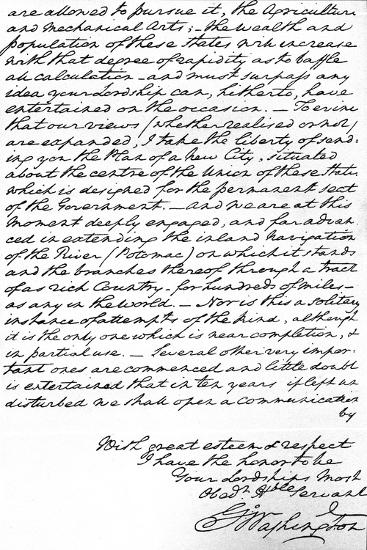 are allowed to pursue it, the Agriculture
and Mechanical Arts; - the wealth and
population of these States will increase
with that degree of rapidity as to baffle
all calculation - and must surpass any
idea your Lordship can, hitherto, have
entertained on the occasion. - To evince
that our views (whether realised or not)
are expanded, I take the liberty of send-
ing you the Plan of a new City, situated
about the centre of the Union of these States,
which is designed for the permanent seat
of the Government. - and we are at this
moment deeply engaged, and far advan-
ced in extending the inland navigation
of the River (Potomac) on which it stands
and the branches thereof through a tract
of as rich Country - for hundreds of miles -
as any in the world. - Nor is this a solitary
instance of attempts of the kind, although
it is the only one which is near completion, &
in partial use. - Several other very impor-
tant ones are commenced and little doubt
is entertained that in ten years if left un
disturbed we shall open a communication
by
With great esteem & respect
I have the honor to be
Your Lordships Most
Obedt. Hble Servant
Go Washington